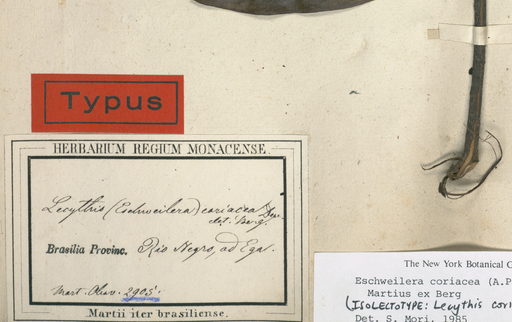 Typus
HERBARIUM REGIUM MONACENSE.
Lecythis (Eschweilera) coriacea
det. Berg.
Brasilia Provinc. Rio Negro, ad Ega.
Mart. Obsv. 2905.
Martii iter brasiliense.
The New York Botanical G
Eschweilera coriacea (A.P
Martius ex Berg
(ISOLECTOTYPE: Lecythis cori
Det. S. Mori, 1985